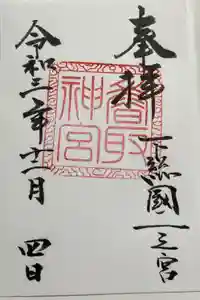 奉拝
下総國一之宮
香取神宮
令和三年十二月 四日